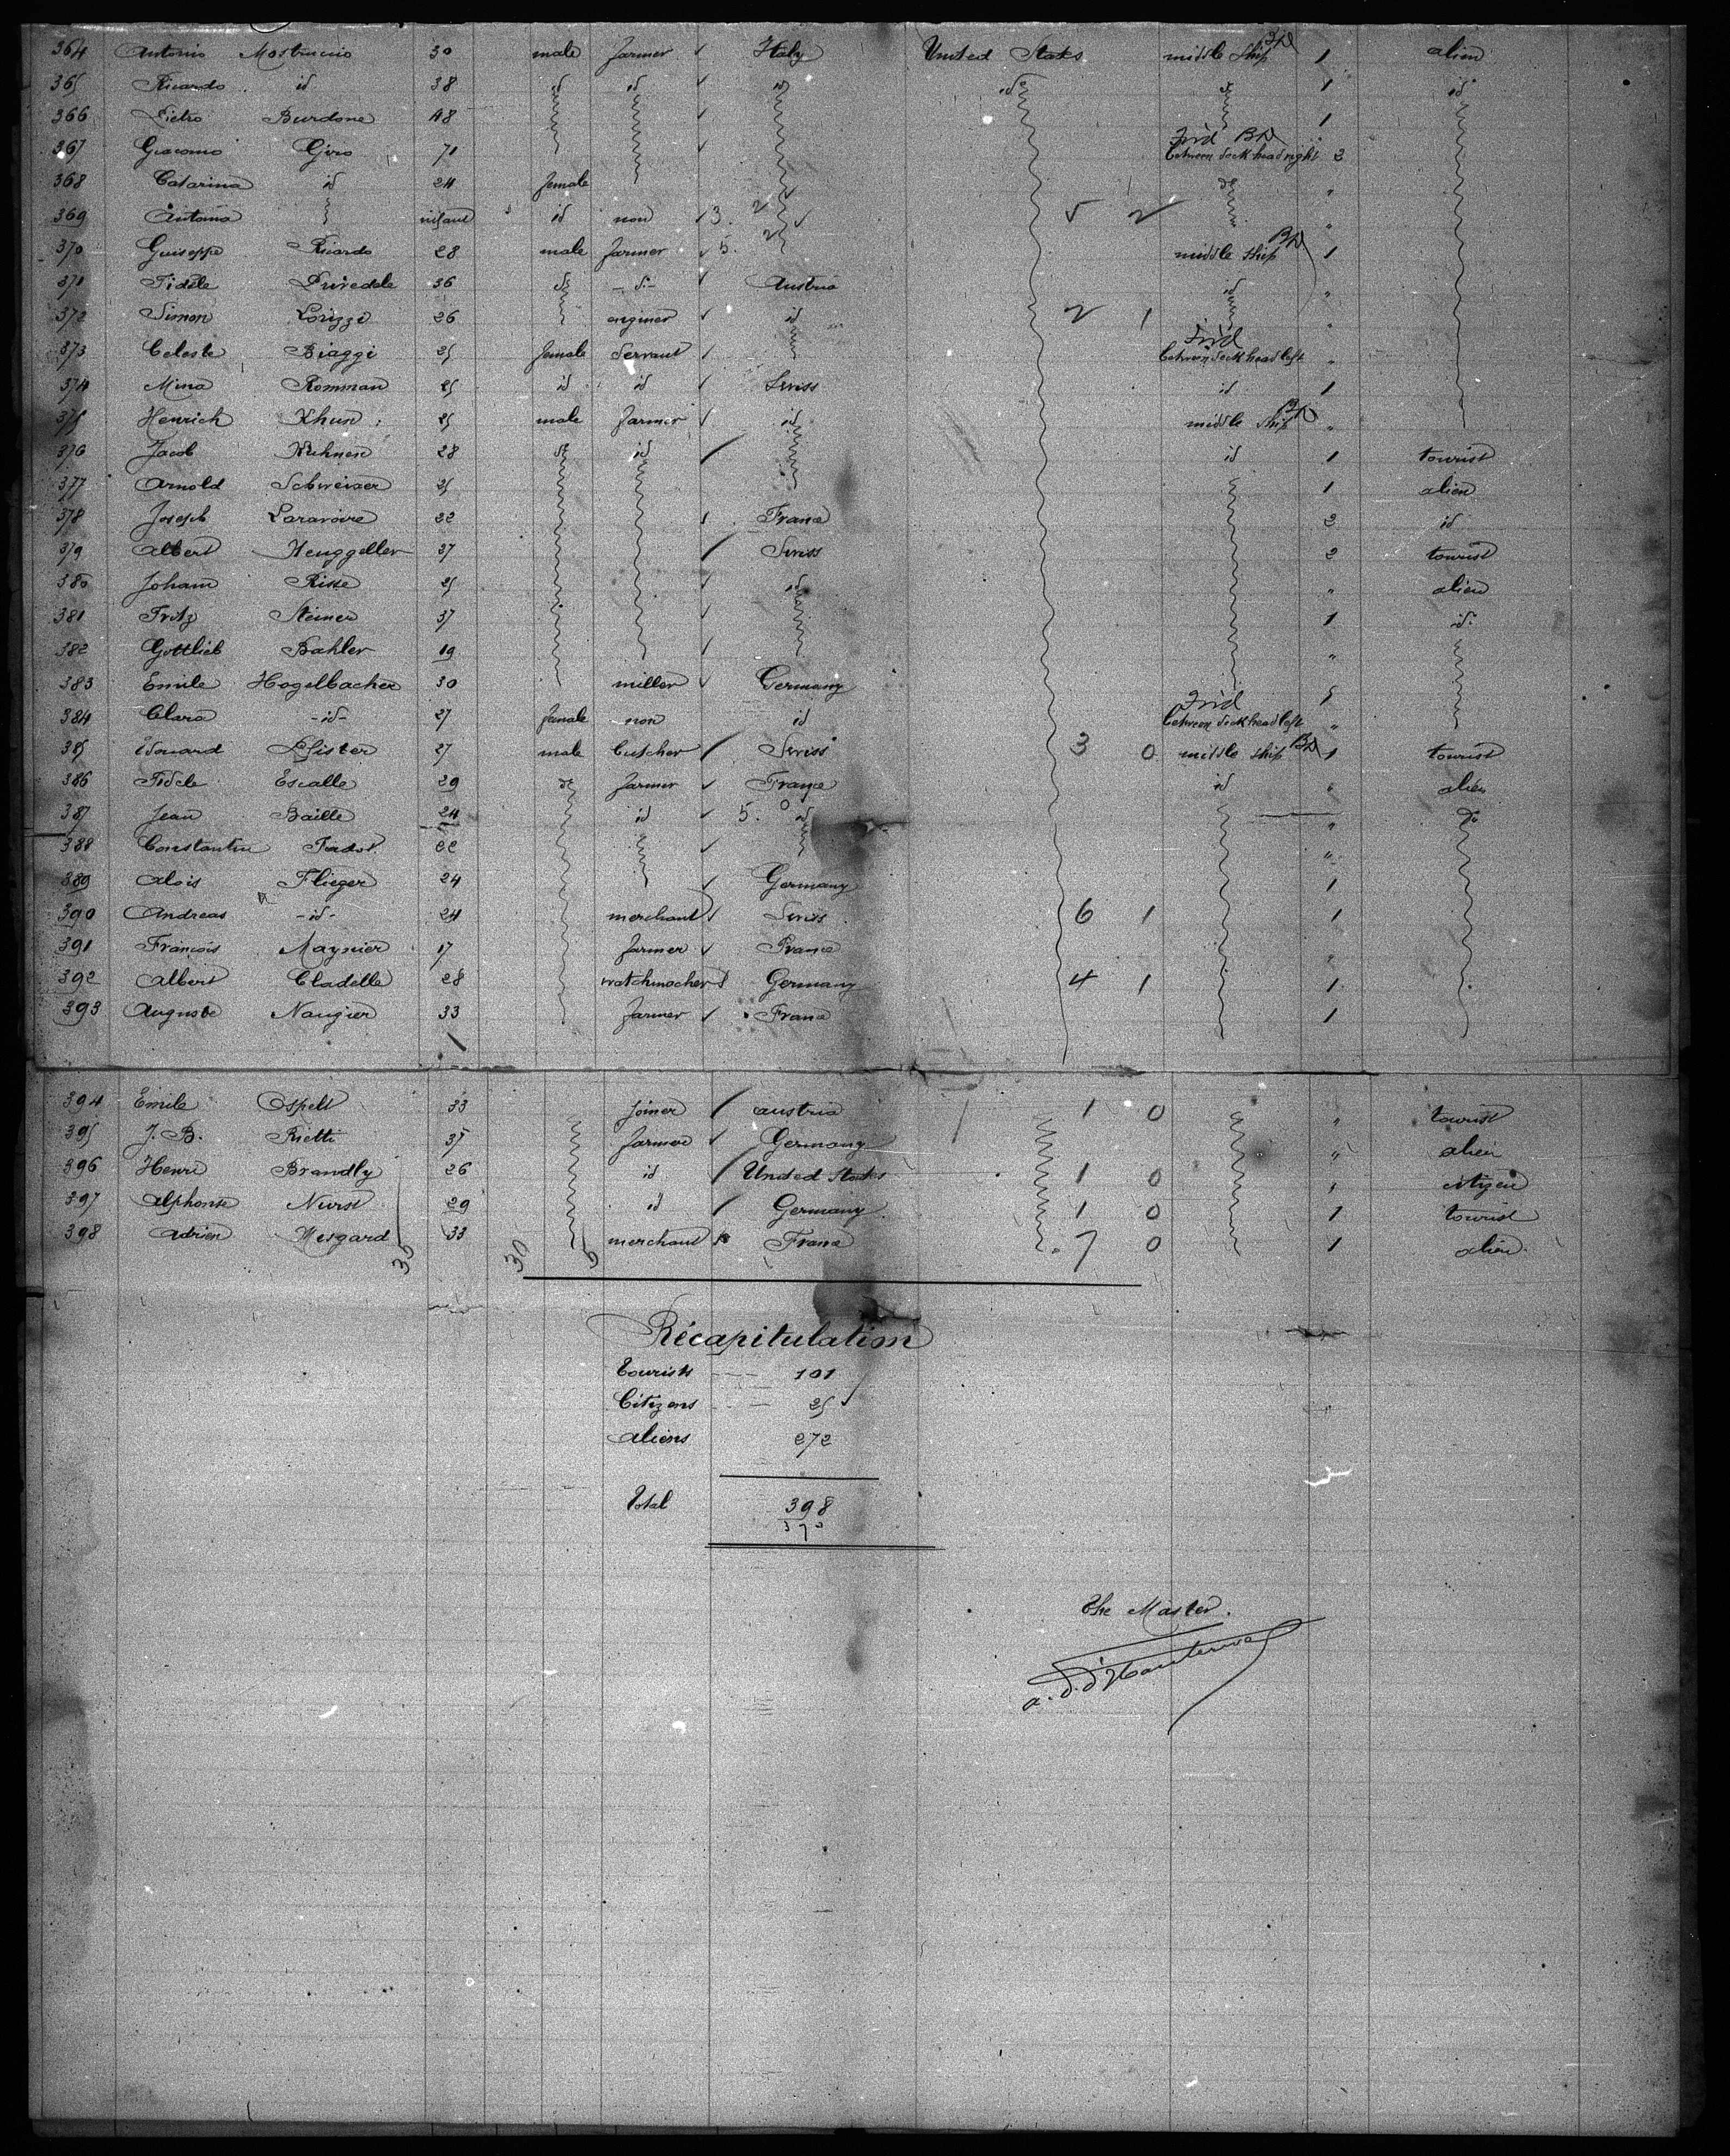 364 Antonio Mostruccio 30 male farmer Italy United States middle ship 1 alien
365 Ricardo id 38 id id id id id 1 id
366 Pietro Burdone 48 1
367 Giacomo Giro 71 between deck head right 2
368 Catarina id 24 female do "
369 Antonia infant id non 3. 2 5 2 "
370 Guiseppe Ricardo 28 male farmer 5. 2 middle ship 1
371 Fidèle Puredale 36 do - do - Austria id "
372 Simon Lorizzi 26 engineer id 2 1 "
373 Celeste Biaggi 25 female servant between deck head left "
374 Mina Romman 25 id id Swiss id 1
375 Henrich Khun 25 male farmer id middle ship "
376 Jacob Kuhnen 28 do id id 1 tourist
377 Arnold Schweizer 25 1 alien
378 Joseph Laravoire 22 France 2 id
379 Albert Heuggeller 37 Swiss 2 tourist
380 Johann Risse 25 id " alien
381 Fritz Steiner 37 1 id.
382 Gottlieb Bahler 19 "
383 Emile Hogelbacher 30 miller Germany 1
384 Clara - id - 27 female non id between deck head left "
385 Edouard Pfister 27 male butcher Swiss 3 0 middle ship 1 tourist
386 Fidele Escalle 29 do farmer France id " alien
387 Jean Baille 24 id 5. 0 id " do
388 Constantin Tadot 22 "
389 Alois Flieger 24 Germany 1
390 Andreas - id - 24 merchant Swiss 6 1 1
391 François Maynier 17 farmer France "
392 Albert Cladelle 28 watchmacher Germany 4 1 1
393 Auguste Naugier 33 farmer France 1
394 Emile Ospelt 33 joiner Austria 1 0 " tourist
395 J. B. Rietti 37 farmer Germany " alien
396 Henri Brandly 26 id United States 1 0 1 citizen
397 Alphonse Nurst 29 id Germany 1 0 1 tourist
398 Adrien Meigard 33 merchant France 7 0 1 alien.
30 30
Récapitulation
tourists 101
Citizens 25
aliens 272
Total 398
370
The Master.